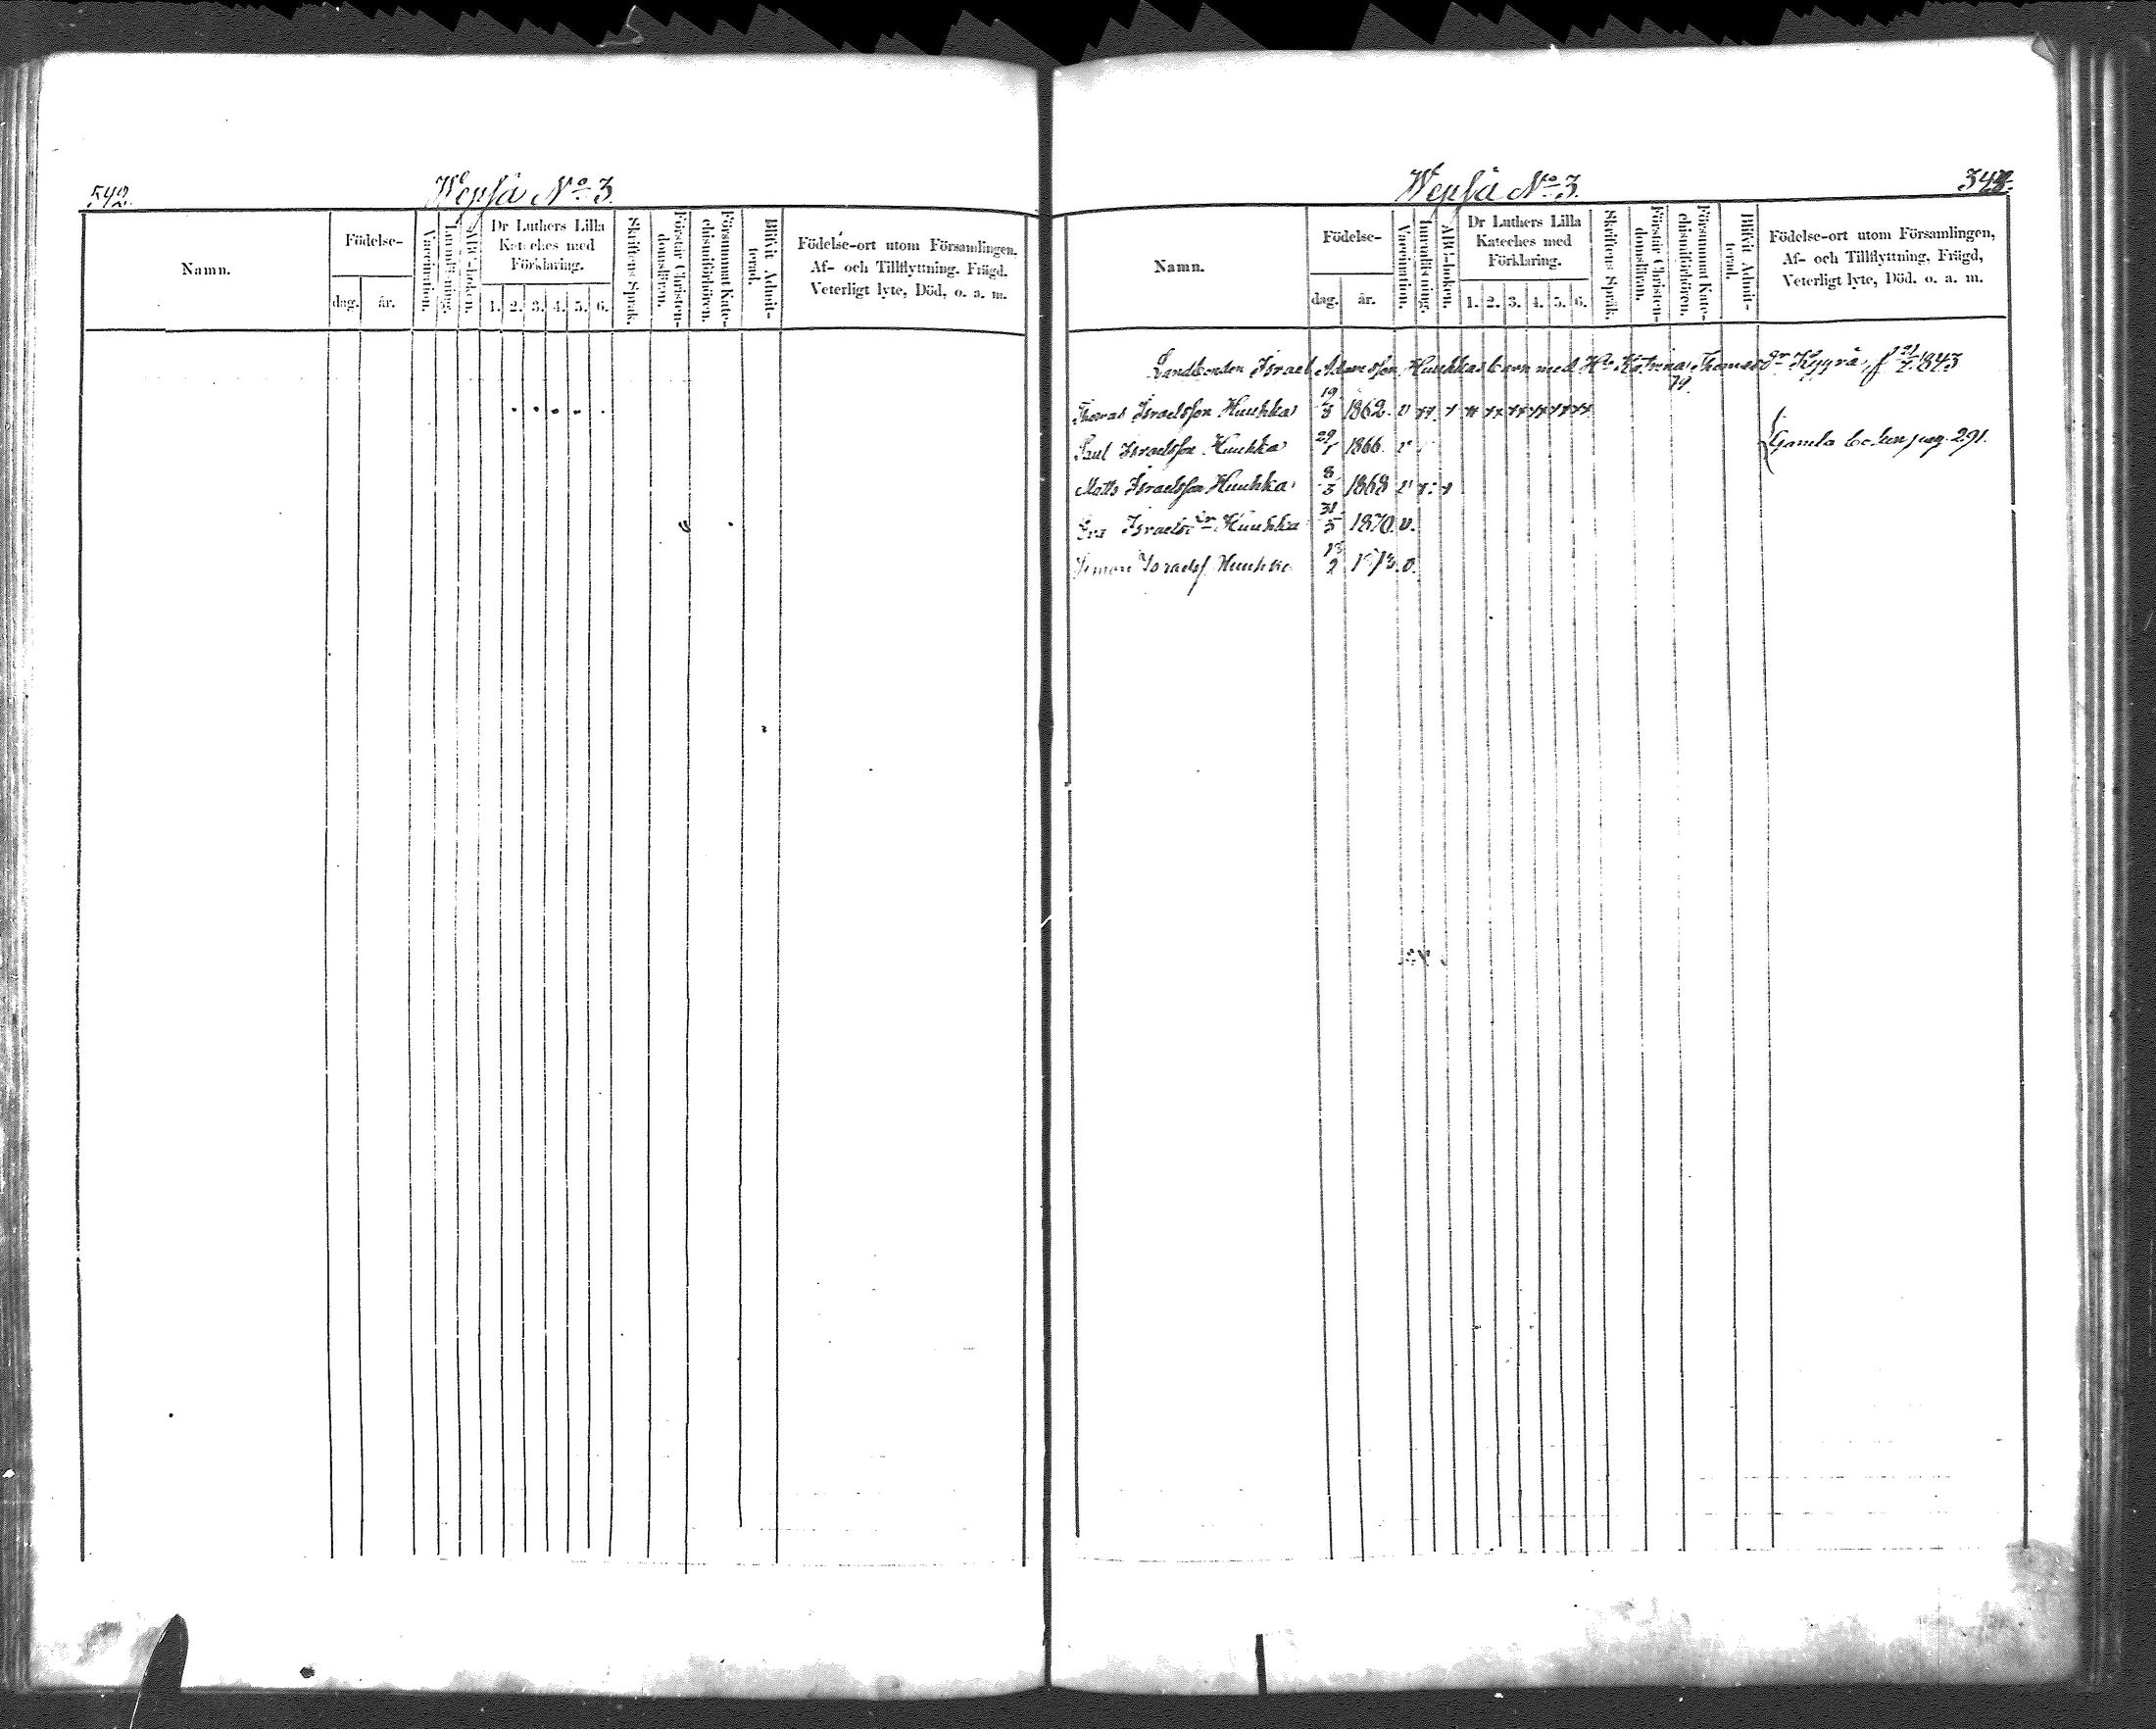 542.
Wepsä No 3.
Namn.
Födelse-
dag. år.
Vaccination.
Innanläsning.
ABC-boken.
Dr Luthers Lilla
Kateches med
Förklaring.
1. 2. 3. 4. 5. 6.
Skriftens Språk.
Förstår Christen-
domsläran.
Försummat Kate-
chismiförhören.
Blifvit Admit-
terad.
Födelse-ort utom Församlingen,
Af- och Tillflyttning, Frägd,
Veterligt lyte, Död, o. a. m.
Wepsä No 3.
343.
Namn.
Födelse-
dag. år.
Vaccination.
Innanläsning.
ABC-boken.
Dr Luthers Lilla
Kateches med
Förklaring.
1. 2. 3. 4. 5. 6.
Skriftens Språk.
Förstår Christen-
domsläran.
Försummat Kate-
chismiförhören.
Blifvit Admit-
terad.
Födelse-ort utom Församlingen,
Af- och Tillflyttning, Frägd,
Veterligt lyte, Död, o. a. m.
Landbonden Israel Adamsson Huuhkas barn med Katrina Thomasdr 1843
Thomas Israelsson Huuhka 19/8 1862. v
Paul Israelsson Huuhka 29/1 1866. v
Gamla boken pag. 291.
Matts Israelsson Huuhka 8/3 1868 v
Eva Israelsdr Huuhka 31/5 1870. v.
Simon Israelss. Huuhka 2 1873. v.